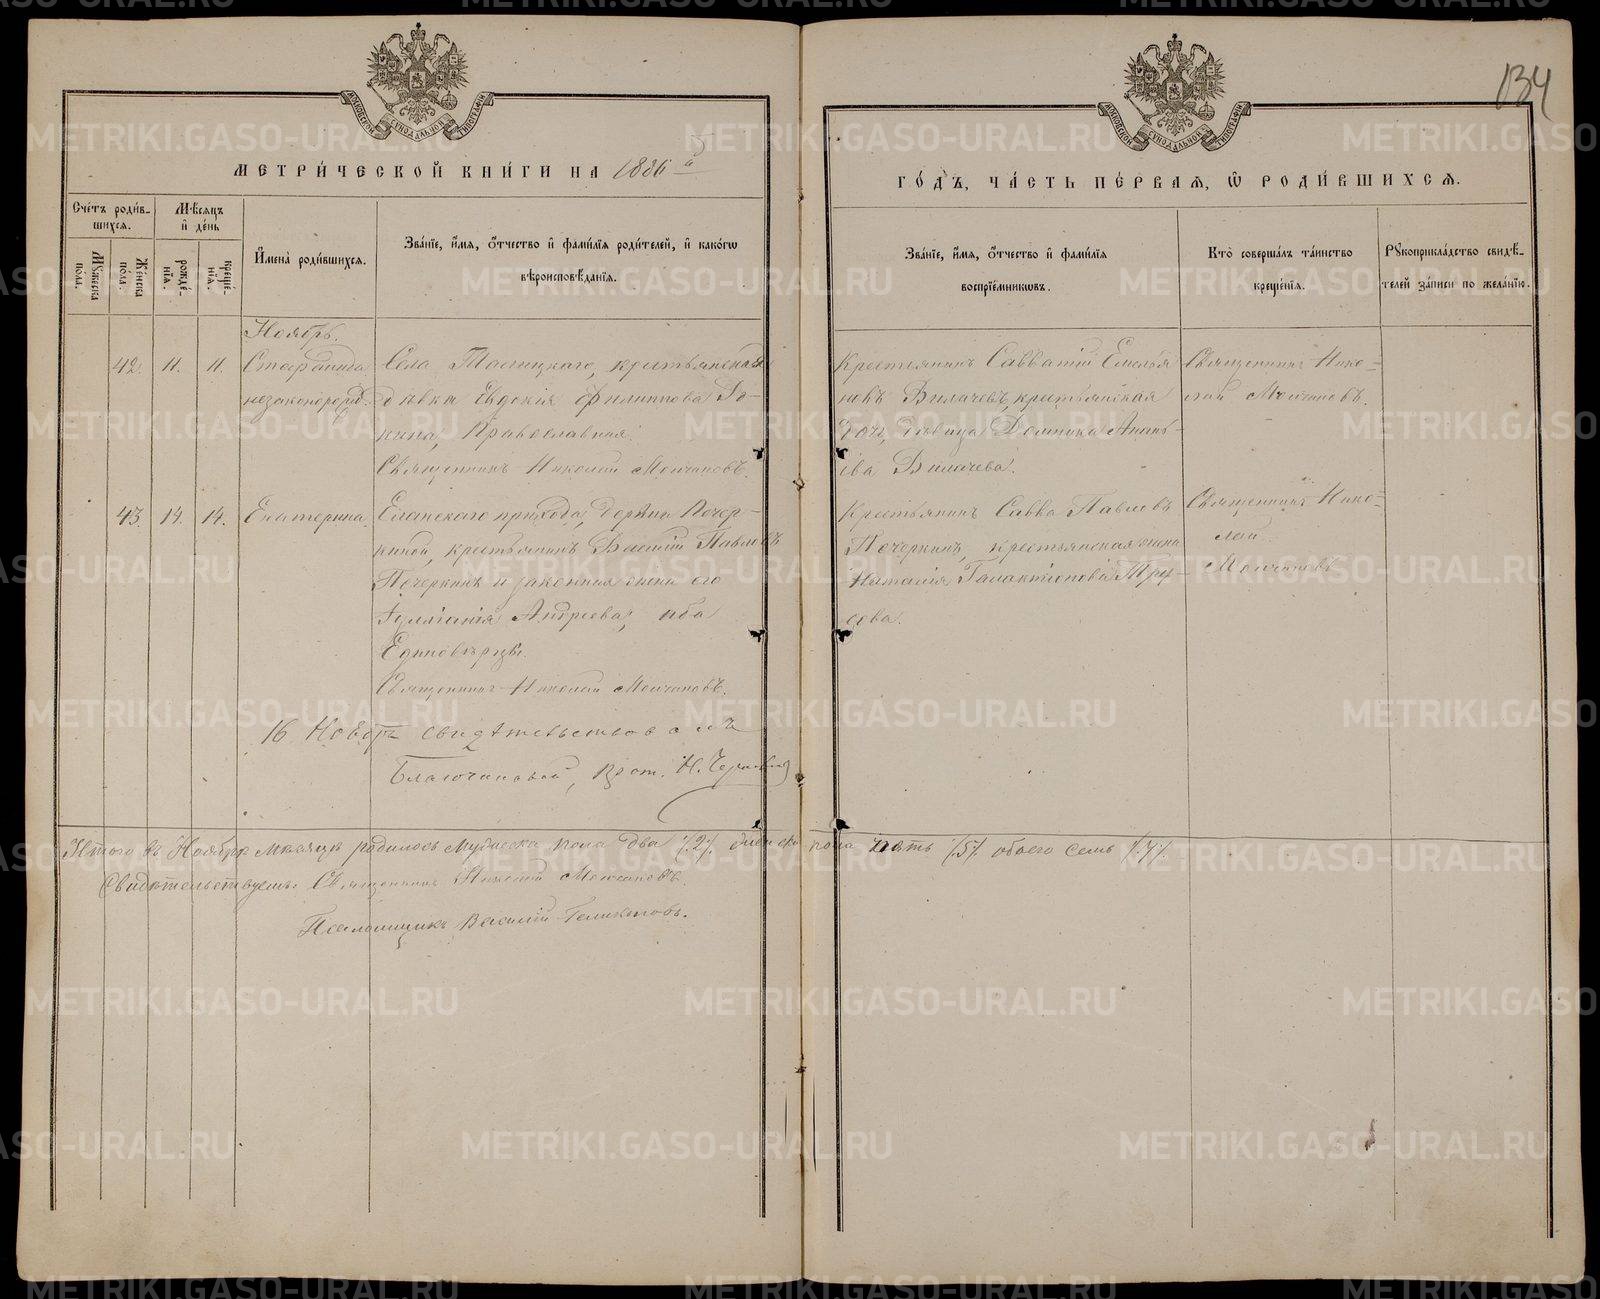 134
МОСКОВСКОЙ СѴНОДАЛЬНОЙ ТИПОГРАФІИ
МОСКОВСКОЙ СѴНОДАЛЬНОЙ ТИПОГРАФІИ
МЕТРИ́ЧЕСКОЙ КНИ́ГИ НА 1886
ГО́ДЪ, ЧА́СТЬ ПЕ́РВАЯ, Ѿ РОДИ́ВШИХСЯ.
Сче́тъ роди́в-
шихся.
Мꙋжеска пола.
Же́нска по́ла.
Мѣ́сяцъ и де́нь
рожде́-
нїя.
креще́-
нїя.
Имена̀ роди́вшихся.
Зва́нїе, и́мя, о́тчество и фами́лїя роди́телей, и како́гѡ
вѣроисповѣ́данїя.
Зва́нїе, и́мя, о́тчество и фами́лїя
воспрїе́мникѡвъ.
Кто̀ соверша́лъ та́инство
креще́нїя.
Рꙋкоприкла́дство свидѣ́-
телей за́писи по жела́нїю.
Ноябрь.
42. 11. 11.
незаконорожд.
Села крестьянская
дѣвка Евдокія Филиппова
Православная.
Священникъ Николай Молчановъ.
Крестьянинъ Савватій Емелья
новъ крестьянская
дочь, дѣвица Домника Анань-
ева
Священникъ Нико-
лай Молчановъ.
43. 14. 14. Екатерина.
Еланскаго прихода, дерѣвни Печер-
киной, крестьянинъ Василій Павловъ
Печеркинъ и законная жена его
Іуліанія Андреева, оба
Единовѣрцы.
Священникъ Николай Молчановъ.
Крестьянинъ Савва Павловъ
Печеркинъ, крестьянская жена
Наталія Галактіонова Тру-
сова.
Священникъ Нико-
лай
Молчановъ
16 Ноябр свидѣтельствовалъ
Благочинный, Прот. Н.
Итого въ Ноябрѣ мѣсяцѣ родилось мужеска пола два /2/. женска пола пять /5/ обоего семь /7/.
Свидѣтельствуемъ: Священникъ Николай Молчановъ.
Псаломщикъ Василій
METRIKI.GASO-URAL.RU